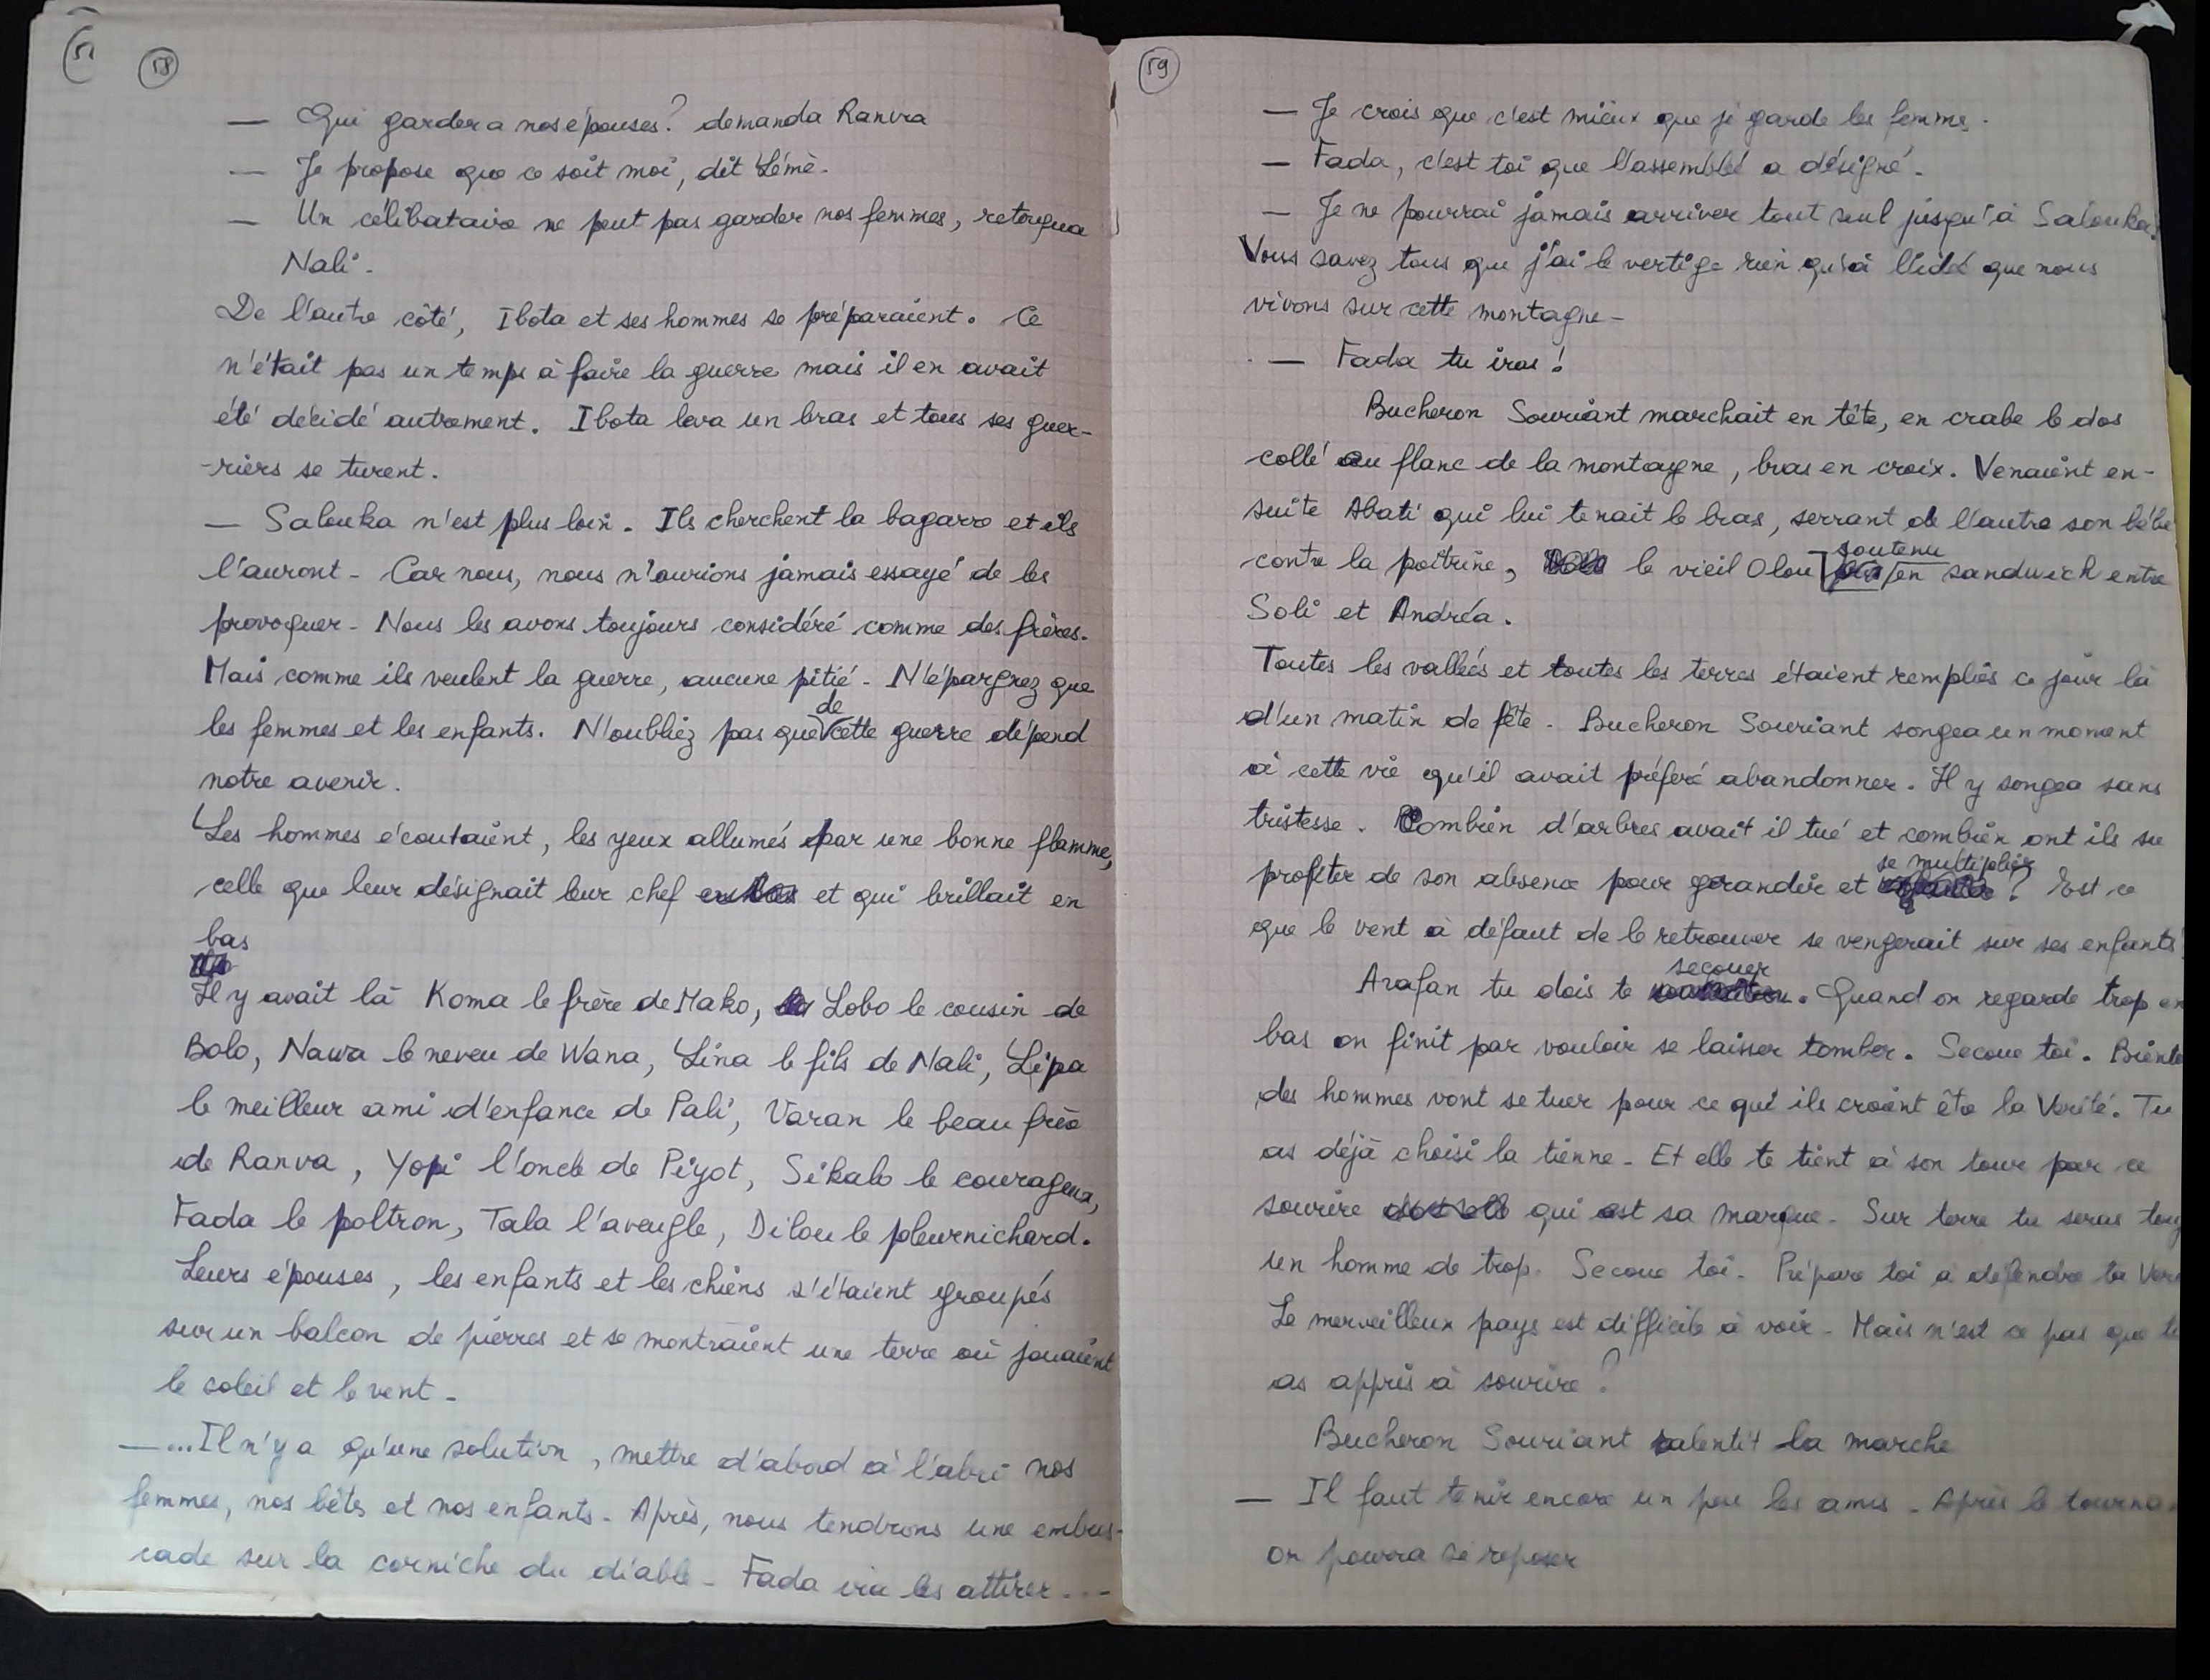 51
58
— Qui gardera nos épouses ? demanda Ranva
— Je propose que ce soit moi, dit Lémé.
— Un célibataire ne peut pas garder nos femmes, retorqua
Nali.
De l'autre côté, Ibota et ses hommes se préparaient. Ce
n'était pas un temps à faire la guerre mais il en avait
été décidé autrement. Ibota leva un bras et tous ses guer-
-riers se turent.
— Salouka n'est plus loin. Ils cherchent la bagarre et ils
l'auront - Car nous, nous n'aurions jamais essayé de les
provoquer - Nous les avons toujours considéré comme des frères.
Mais comme ils veulent la guerre, aucune pitié - N'épargnez que
les femmes et les enfants. N'oubliez pas que de cette guerre dépend
notre avenir.
Les hommes écoutaient, les yeux allumés par une bonne flamme,
celle que leur désignait leur chef en bas et qui brillait en
bas
Il y avait là Koma le frère de Mako, Lobo le cousin de
Bolo, Nawa le neveu de Wana, Lina le fils de Nali, Lipa
le meilleur ami d'enfance de Pali, Varan le beau frère
de Ranva, Yopi l'oncle de Piyot, Sikalo le courageux,
Fada le poltron, Tala l'aveugle, Dilou le pleurnichard.
Leurs épouses, les enfants et les chiens s'étaient groupés
sur un balcon de pierres et se montraient une terre où jouaient
le soleil et le vent -
—...Il n'y a qu'une solution, mettre d'abord à l'abri nos
femmes, nos bêtes et nos enfants - Après, nous tendrons une embus-
cade sur la corniche du diable - Fada ira les attirer...
59
— Je crois que c'est mieux que je garde les femmes.
— Fada, c'est toi que l'assemblée a désigné.
— Je ne pourrai jamais arriver tout seul jusqu'à Salouka.
Vous savez tous que j'ai le vertige rien qu'à l'idée que nous
vivons sur cette montagne -
— Fada tu iras !
Bucheron Souriant marchait en tête, en crabe le dos
collé au flanc de la montagne, bras en croix. Venaient en-
suite Abati qui lui tenait le bras, serrant de l'autre son bébé
contre la poitrine, le vieil Olou soutenu en sandwich entre
Soli et Andréa.
Toutes les vallées et toutes les terres étaient remplies ce jour là
d'un matin de fête - Bucheron Souriant songea un moment
à cette vie qu'il avait préféré abandonner. Il y songea sans
tristesse. Combien d'arbres avait il tué et combien ont ils su
profiter de son absence pour grandir et se multiplier ? Est ce
que le vent à défaut de le retrouver se vengerait sur ses enfants
Arafan tu dois te secouer. Quand on regarde trop en
bas on finit par vouloir se laisser tomber. Secoue toi.
des hommes vont se tuer pour ce qu'ils croient être la Vérité. Tu
as déjà choisi la tienne - Et elle te tient à son tour par ce
sourire qui est sa marque - Sur terre tu seras
un homme de trop. Secoue toi - Prépare toi à défendre ta
Le merveilleux pays est difficile à voir - Mais n'est ce pas que
as appris à sourire ?
Bucheron Souriant ralentit la marche
— Il faut tenir encore un peu les amis - Après le
on pourra se reposer